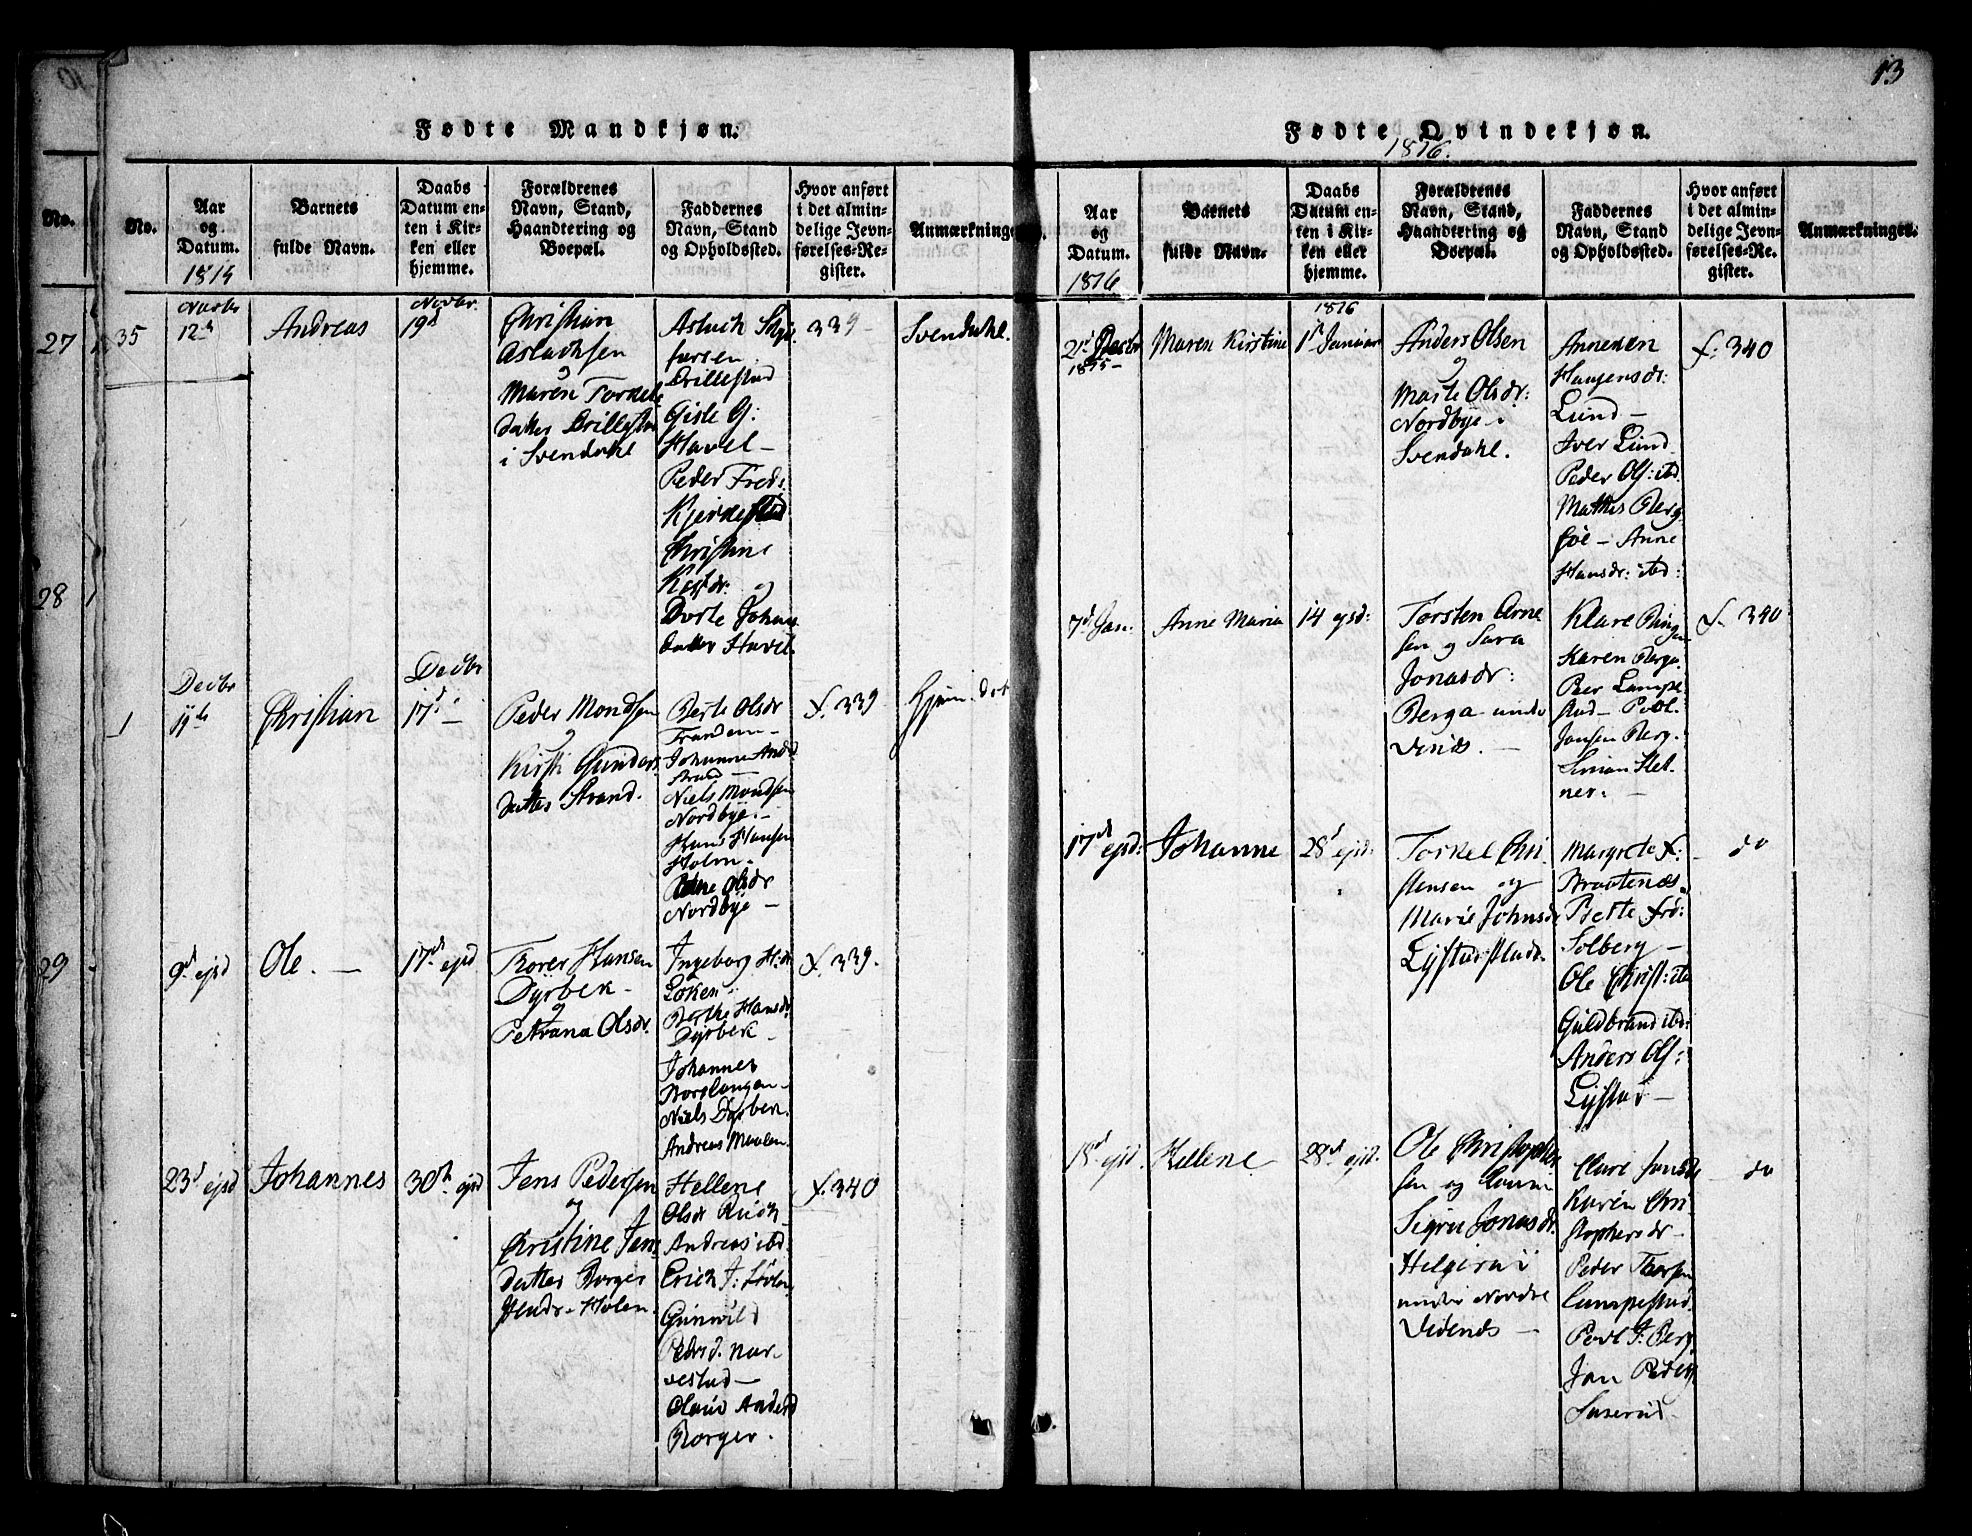 13
Fødte Mandkjøn.
No.
Aar
og
Datum.
1815
Barnets
fulde Navn.
Daabs
Datum en-
ten i Kir-
ken eller
hjemme.
Forældrenes
Navn, Stand,
Haandtering og
Boepæl.
Faddernes
Navn, Stand
og Opholdssted.
Hvor anført
i det almin-
delige Jevn-
førelses-Re-
gister.
Anmærkninger
No.
27
28
29
35
Novbr
12te
Andreas
Novbr.
19d
Christian
Aslachsen
og
Maren Torkels
datter Drillestad
i Svendahl
Aslach
Drillestad
Gisle G:
Havel-
Peder Freds.
Kjerkestad
Christine
og
Dorte Johans
datter Havel.
339-
Svendahl.
1
Decbr
Christian
Decbr
17d-
Peder Mondsen
og
Kirsti Gunders
datter Strand.
Berte Olsdr
Trandem-
Johanne And
Strand-
Niels Mondsen
Nordbye.-
Hans Hansen
Holm.
Olsdr
Nordbye-
f. 339
9d ejsd
Ole.-
17d ejsd
Thorer Hansen
Dyrbek-
og
Petrana Olsdr.
Ingeborg H:dr
Løken.
Berthe Hansdr
Dyrbek-
Johannes
Niels Dyrbek.
Andreas
f. 339.
23d ejsd
Johannes
30te ejsd
Jens Pedersen
og
Christine Jens
datter Borger
Hellene
Olsdr
Andreas ibd.
Erich J:
Gunnild
Pedrsd. Nar-
vestad-
Anders
Borger.
f. 340
Fødte Qvindekjøn.
1816.
Aar
og
Datum.
1816
Barnets
fulde Navn.
Daabs
Datum en-
ten i Kir-
ken eller
hjemme.
Forældrenes
Navn, Stand,
Haandtering og
Boepæl.
Faddernes
Navn, Stand
og Opholdssted.
Hvor anført
i det almin-
delige Jevn-
førelses-Re-
gister.
Anmærkninger.
21d Decbr
1815-
Maren Kirstine
1816
1st Januar
Anders Olsen
og
Marte Olsdr:
Nordbye i
Svendahl.
Annexen
Hansensdr:
Lund-
Iver Lund
Peder Ols: ibd
Mathis Berg
Anne
Hansdr: ibd:
f: 340
7d Jan:
Anne Maria
14 ejsd:
Torsten Arne
sen og Sara
Jonasdr:
Berga under
Klare
Karen Berga
Peer Lampe
stad- Povl
Jansen Berg.
Simen Slet-
ner.-
f. 340
17d ejsd:
Johanne
28d ejsd:
Torkel Chri
stensen og
Marie Johnsdr
Margrete f:
Berte
Solberg-
Ole Christ: ibd
Guldbrand ibd:
Anders Ols:
Lystad-
do
18d ejsd.
Hellene
28d ejsd.
Ole Christopher
sen og
Sigri Jonasdr.
Helgerud i
under Nordre
Videnes-
Clare Jonsdr
Karen Chri
stophersdr-
Peder Thorsen
Lampestad.
Povl J: Berg
Jan Peders
do